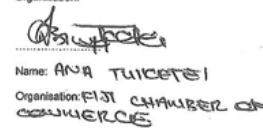 Name: ANA TUICETEI
Organisation: FIJI CHAMBER OF
COMMERCE